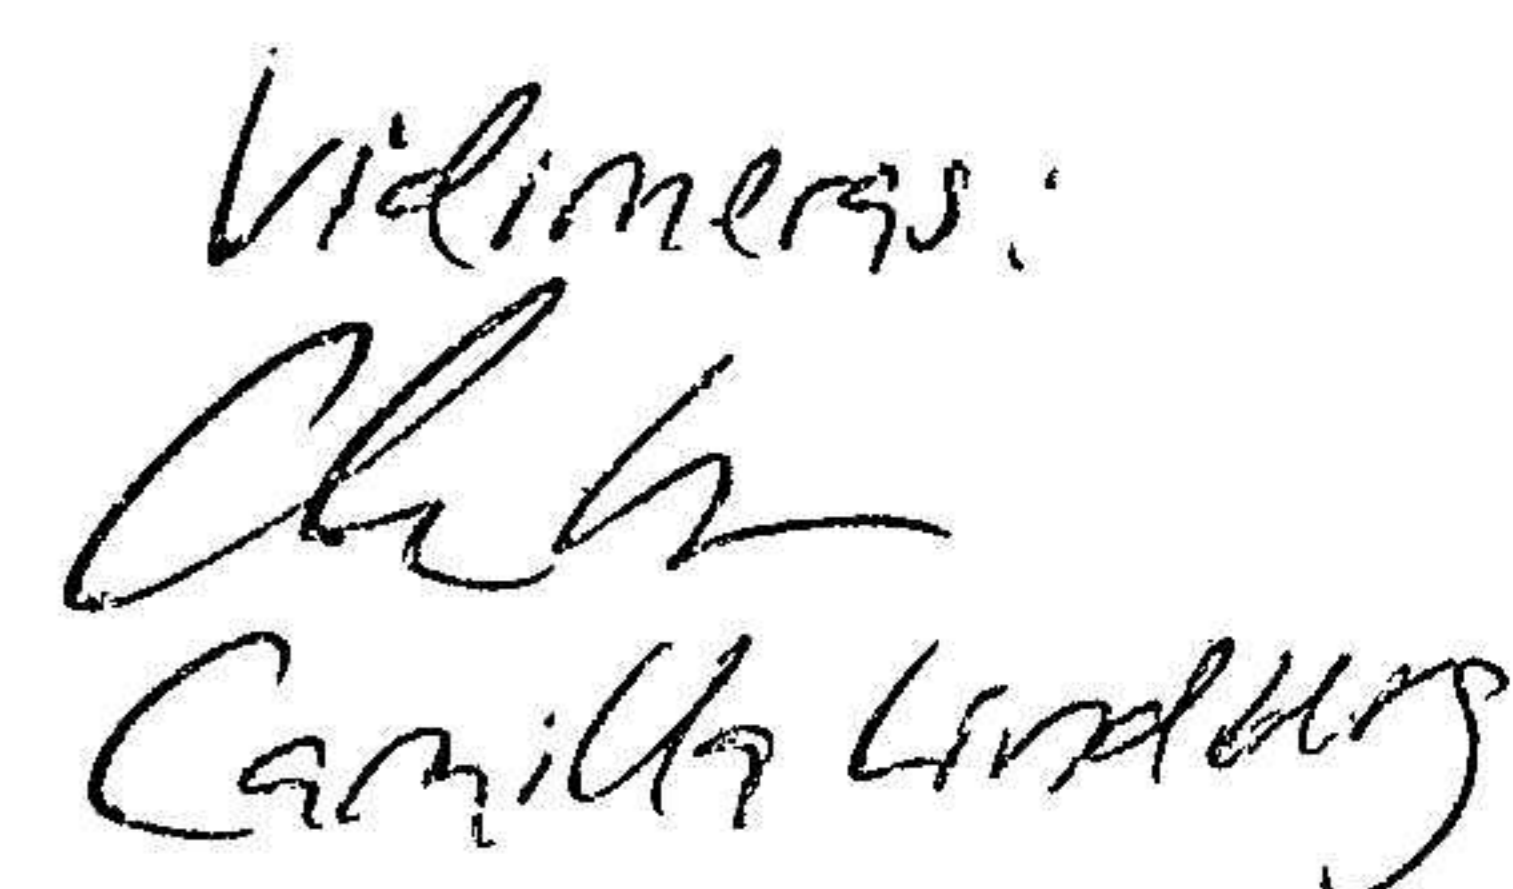 Vidimeras:
Camilla Lindberg